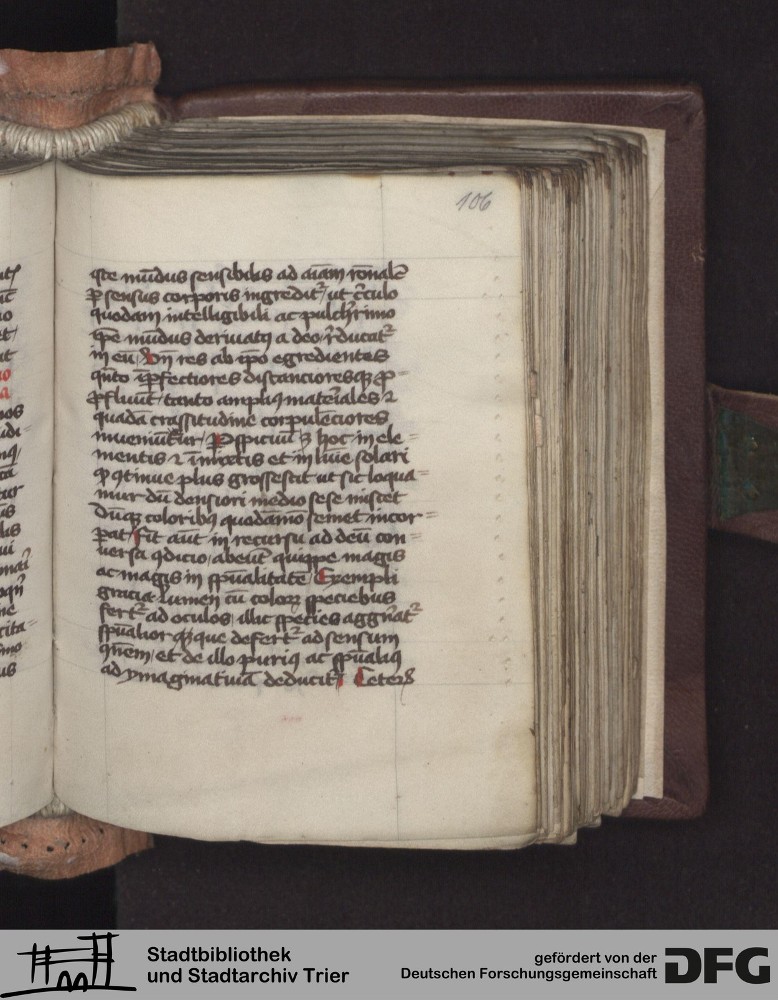 106
iste mūdus sensibilis ad aīam rōnalē
ꝑ sensus corporis ingredit᷑ / ut c᷑culo
quodam intelligibili ac pulch᷑rimo
ip̄e mūdus derivatꝯ a deo / r᷑ducat᷑
in eū / res ab ip̄o egredientes
qn̄to īꝑfectiores distancioresqꝫ
ꝓfluūt / tanto ampliꝯ mat᷑iales ⁊
quadā crassitudine corpulēciores
inveniūtur / ꝑspiciuū hoc in ele=
mentis ⁊ et in solari
ꝙ ꝯtinue plus grossescit ut sic loqua=
mur dū densiori medio sese miscet
Dūqꝫ coloribꝯ quodāmō semet incor=
ꝑat / Fit aūt in recursu ad deū con=
versa ꝯdicio / abeūt quippe magis
ac magis in sp̄ualitatē / Exempli
gracia lumen cū coloꝝ speciebus
fert᷑ ad oculos / illic species aggn᷑at᷑
sp̄ualior defert᷑ ad sensum
et de illo puriꝯ ac sp̄ualiꝯ
ad ymaginativā deducit᷑ / Ceterꝫ
Stadtbibliothek
und Stadtarchiv Trier
gefördert von der
Deutschen Forschungsgemeinschaft
DFG